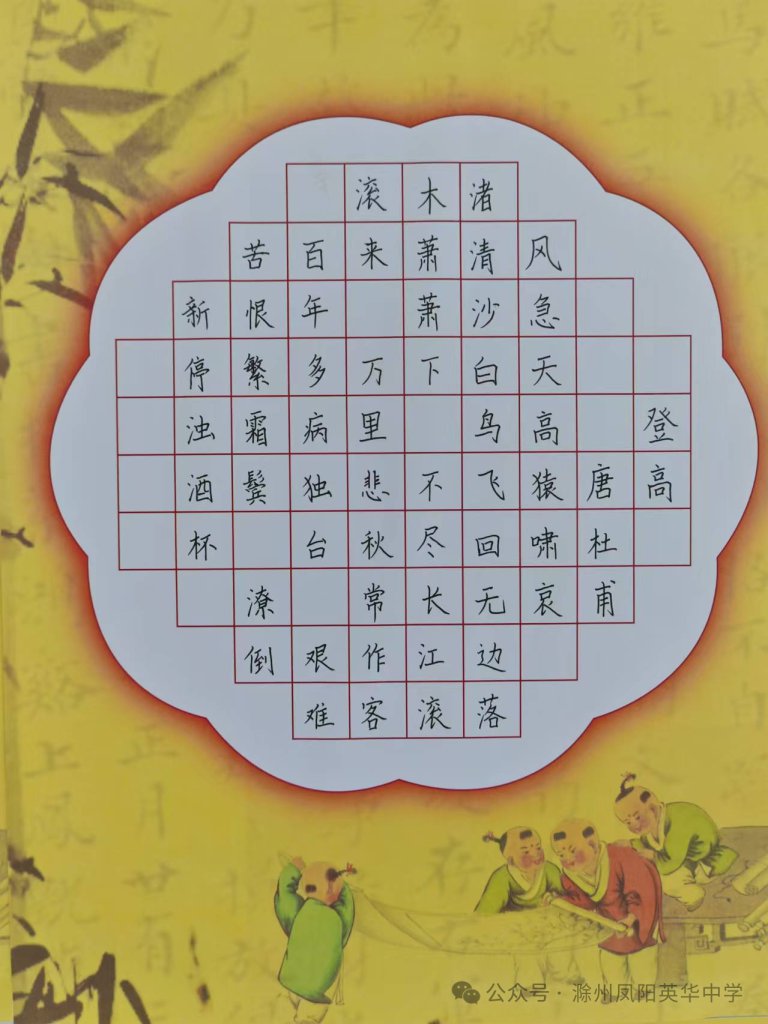 登高
唐杜甫
风急天高猿啸哀
渚清沙白鸟飞回无边落
木萧萧下不尽长江滚
滚来万里悲秋常作客
百年多病独台艰难
苦恨繁霜鬓潦倒
新停浊酒杯
公众号 · 滁州凤阳英华中学